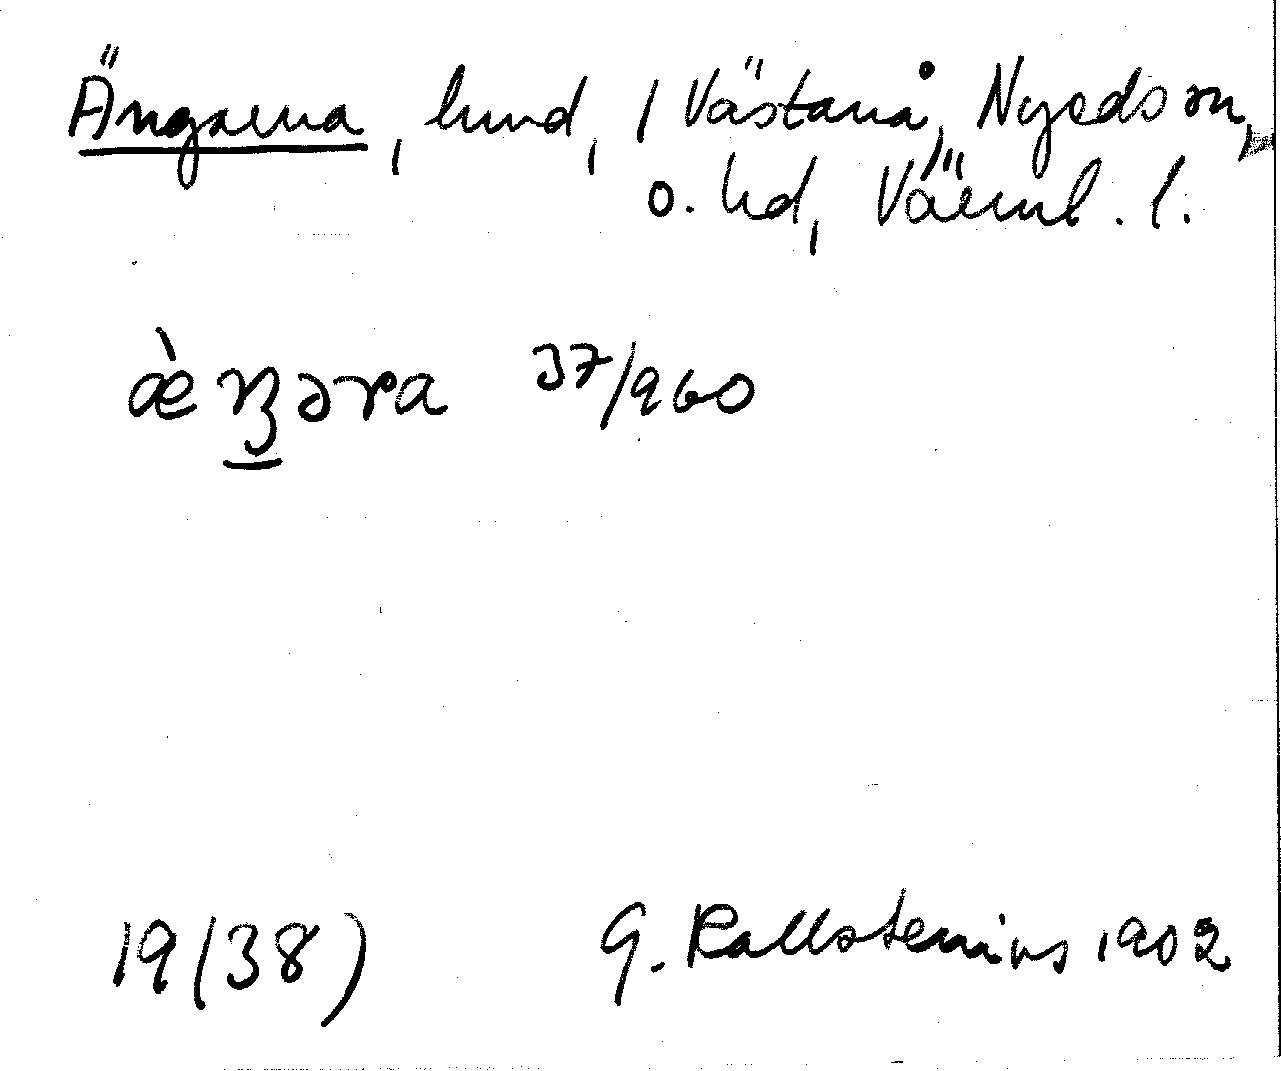 Ängarna, lund, i Västanå, Nyeds sn,
o. hd, Värml. l.
æ̀ŋəra 37/960
19(38) G. Kallstenius 1902